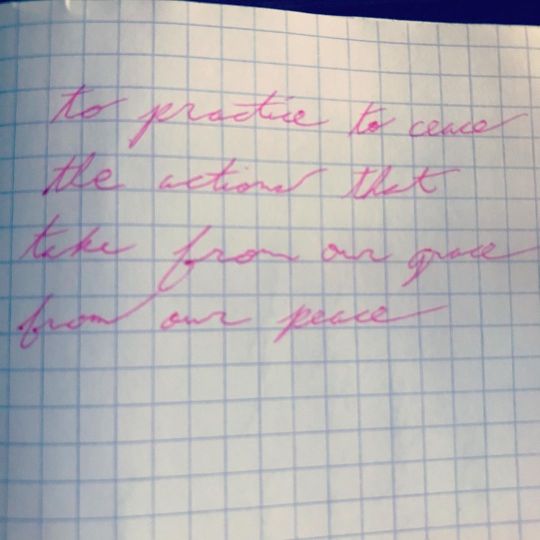 to practice to cease
the actions that
take from our grace
from our peace